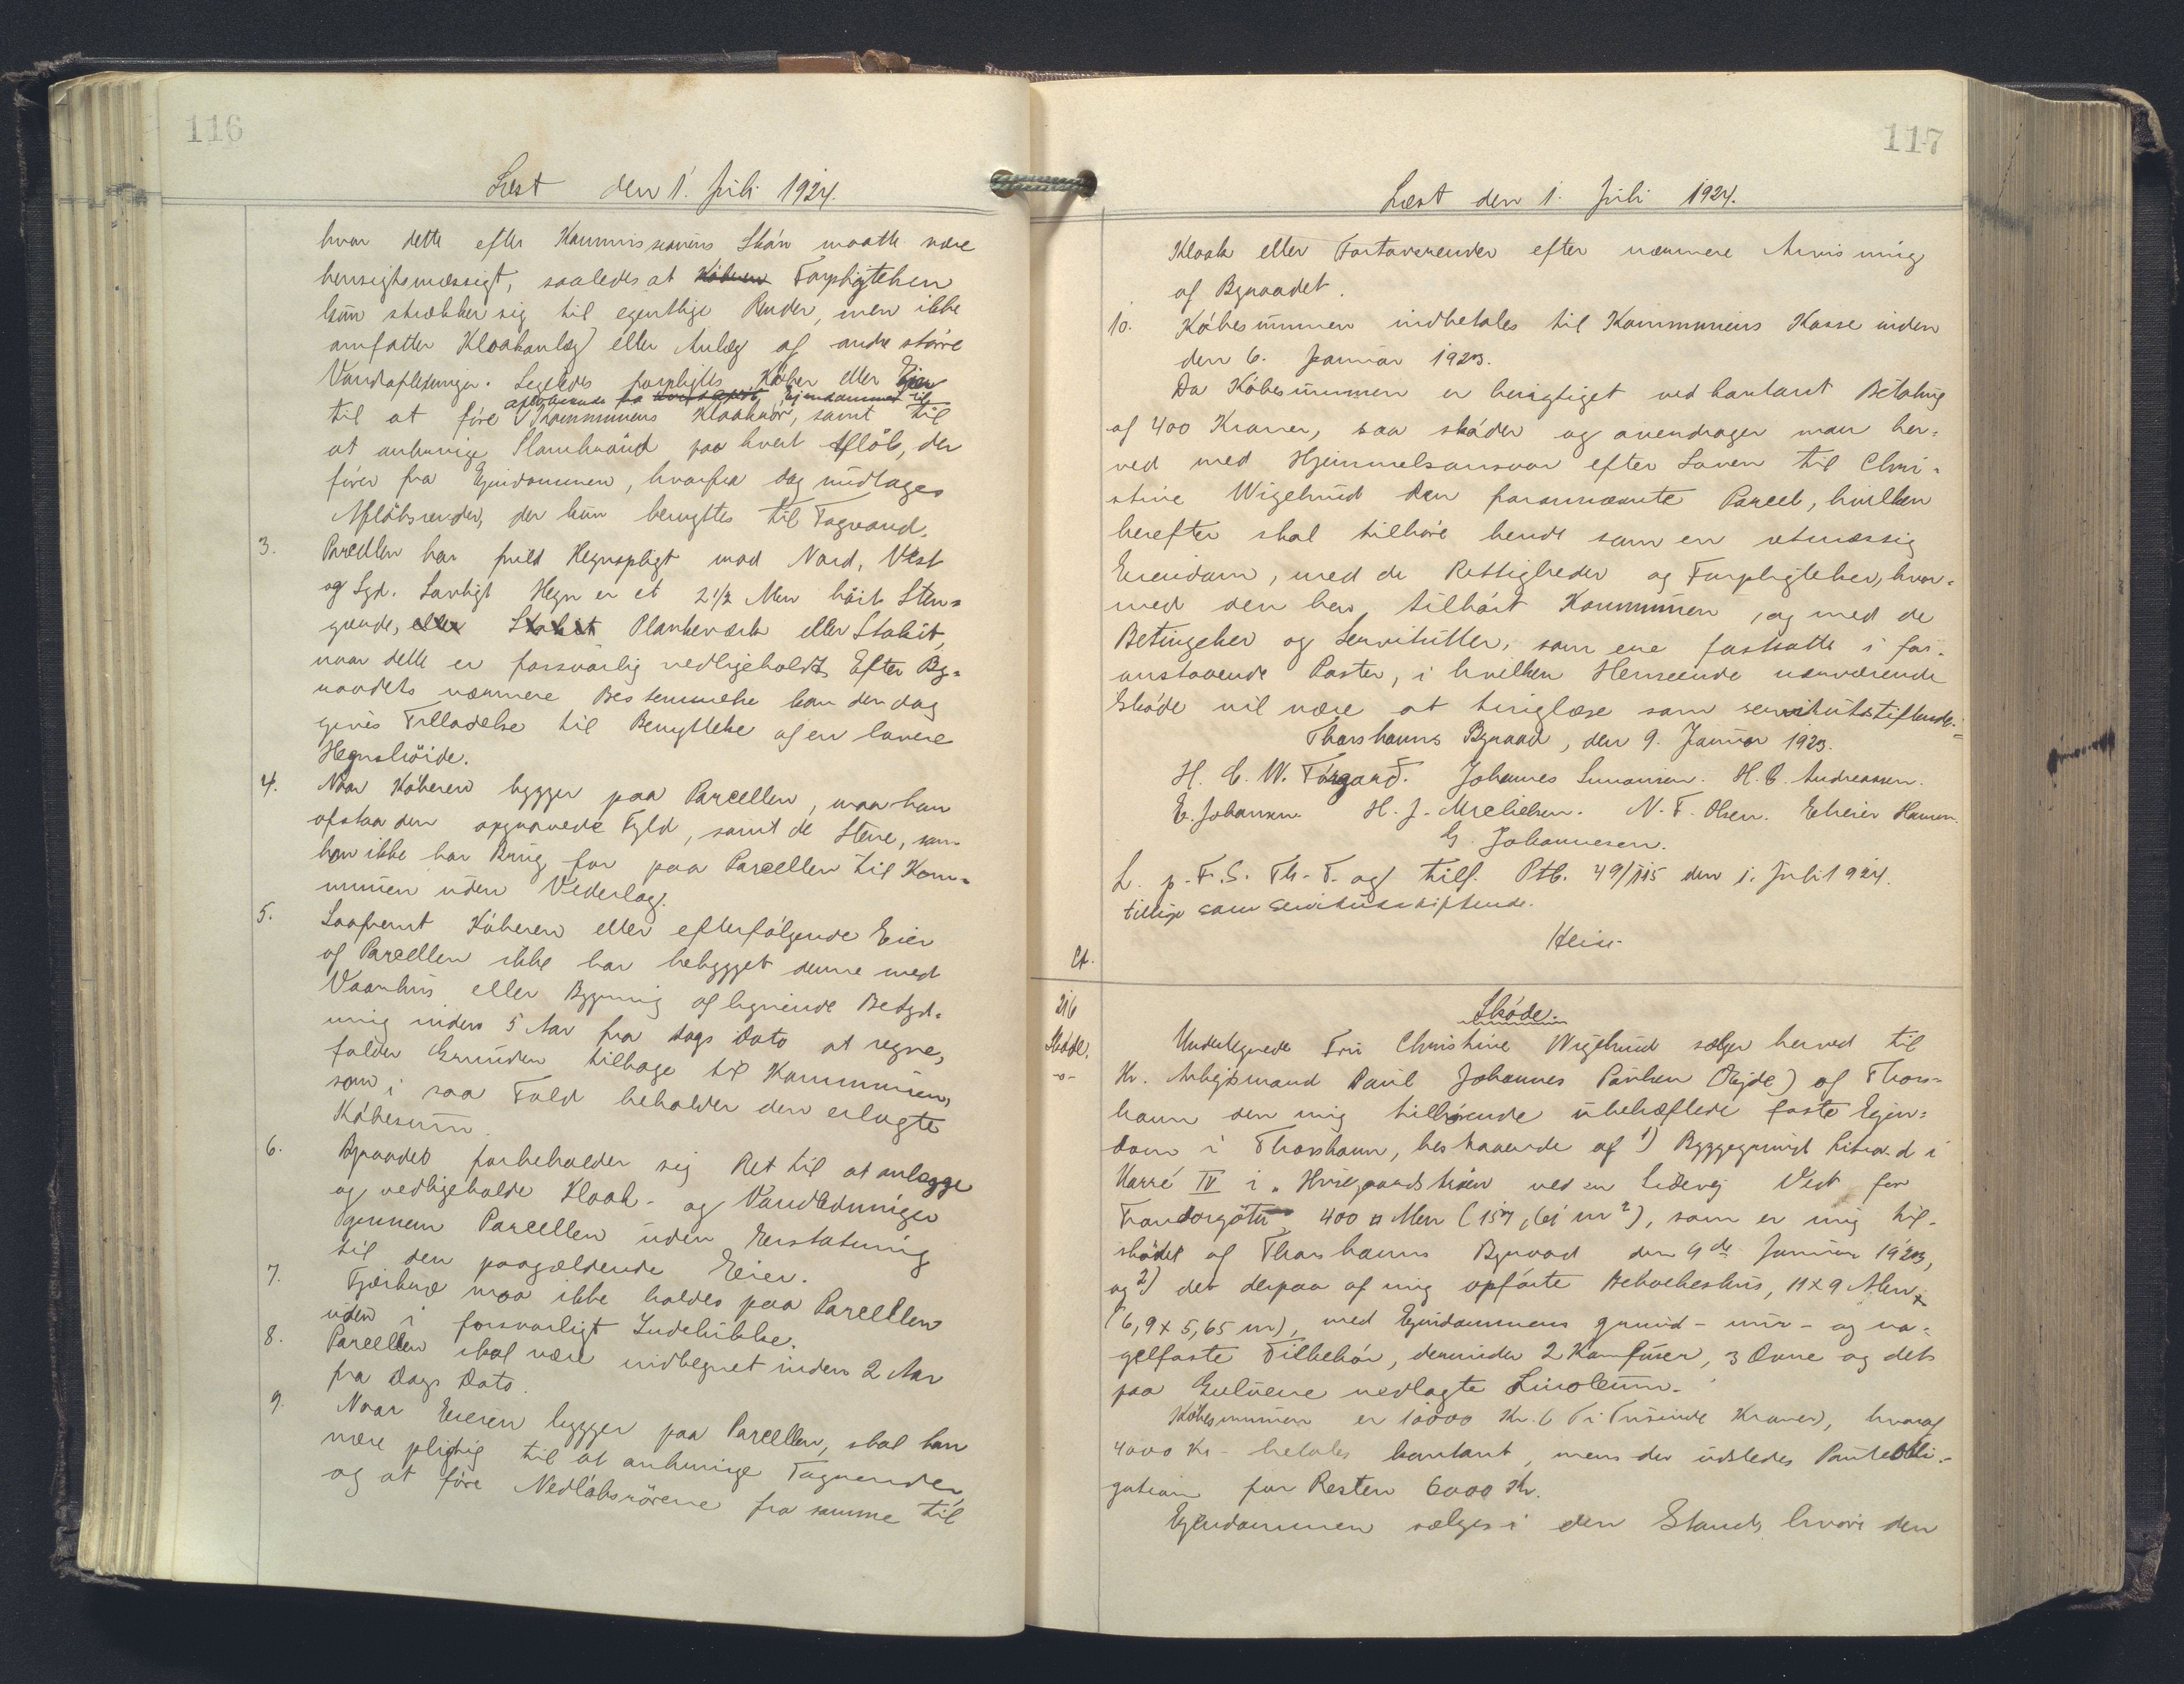 116
Læst den 1. Juli 1924.
hvor dette efter Kommissionens Skön maatte være
hensigtsmæssigt, saaledes at Köberen Forpligtelsen
kun strækker sig til egentlige Render, men ikke
omfatter Kloakanlæg eller Anlæg af andre större
Vandafledninger. Ligeledes forpligtes Köber eller Ejer
Ejendommen til
til at före Kommunens Kloakrör, samt til
at anbringe Slambrönd paa hvert Aflöb, der
förer fra Ejendommen, hvorfra dog undtages
Aflöbsrender, der kun benyttes til Tagvand.
3. Parcellen har fuld Hegnspligt mod Nord, Vest
og Syd. Lovligt Hegn er et 2 1/2 Alen höit Sten=
gærde, eller Stakit Plankeværk eller Stakit,
naar dette er forsvarlig vedligeholdt. Efter By=
raadets nærmere Bestemmelse kan der dog
gives Tilladelse til Benyttelse af en lavere
Hegnshöide.
4. Naar Köberen bygger paa Parcellen, maa han
afstaa den opgravede Fyld, samt de Stene, som
han ikke har Brug for paa Parcellen til Kom=
munen uden Vederlag.
5. Saafremt Köberen eller efterfölgende Eier
af Parcellen ikke har bebygget denne med
Vaanhus eller Bygning af lignende Betyd=
ning inden 5 Aar fra Dags Dato at regne,
falder Grunden tilbage til Kommunen,
som i saa Fald beholder den erlagte
Köbesum.
6. Byraadet forbeholder sig Ret til at anlægge
og vedligeholde Kloak- og Vandledninger
gennem Parcellen uden Erstatning
til den paagældende Eier.
7. Fjerkræ maa ikke holdes paa Parcellen
uden i forsvarligt Indelukke.
8. Parcellen skal være indhegnet inden 2 Aar
fra Dags Dato.
9. Naar Eieren bygger paa Parcellen, skal han
være pligtig til at anbringe Tagrender
og at före Nedlöbsrörene fra samme til
117
Læst den 1. Juli 1924.
Kloak eller Fortovsrender efter nærmere Anvisning
af Byraadet.
10. Köbesummen indbetales til Kommunens Kasse inden
den 6. Januar 1923.
Da Köbesummen er berigtiget ved kontant Betaling
af 400 Kroner, saa sköder og overdrager man her=
ved med Hjemmelsansvar efter Loven til Chri=
stine Wigelund den forannævnte Parcel, hvilken
herefter skal tilhöre hende som en retmæssig
Eiendom, med de Rettigheder og Forpligtelser, hvor=
med den har tilhört Kommunen, og med de
Betingelser og Servitutter, som ere fastsatte i for=
anstaaende Poster, i hvilken Henseende nærværende
Sköde vil være at tinglæse som servitutstiftende.=
Thorshavns Byraad, den 9. Januar 1923.
H. C. W. Tórgarð. Johannes Simonsen. H. C. Andreasen.
E. Johansen. H. J. Mrelielsen. N. F. Olsen. Elieser Hansen.
G. Johannesen.
L. p. F. S. Th. T. og tilf. Ptb. 49/115 den 1. Juli 1924.
tillige som servitutstiftende.
Heise
Ct.
216
Sköde.
-o-
Sköde.
Undertegnede Fru Christine Wigelund sælger herved til
Hr. Arbejdsmand Paul Johannes Poulsen (Ejde) af Thors=
havn den mig tilhörende ubehæftede faste Ejen=
dom i Thorshavn, bestaaende af 1) Byggegrund Litra d i
Karré IV i ved en Sidevej Vest for
400 □ Alen (157,61 m²), som er mig til=
sködet af Thorshavns Byraad den 9de Januar 1923,
og 2) det derpaa af mig opförte Beboelseshus, 11 x 9 Alen
(6,9 x 5,65 m), med Ejendommens grund- mur- og na=
gelfaste Tilbehör, derunder 2 Komfurer, 3 Ovne og det
paa Gulvene nedlagte Linoleum.
Köbesummen er 10000 Kr. (Ti Tusinde Kroner), hvoraf
4000 Kr. betales kontant, mens der udstedes Panteobli=
gation for Resten 6000 Kr.
Ejendommen sælges i den Stand, hvori den